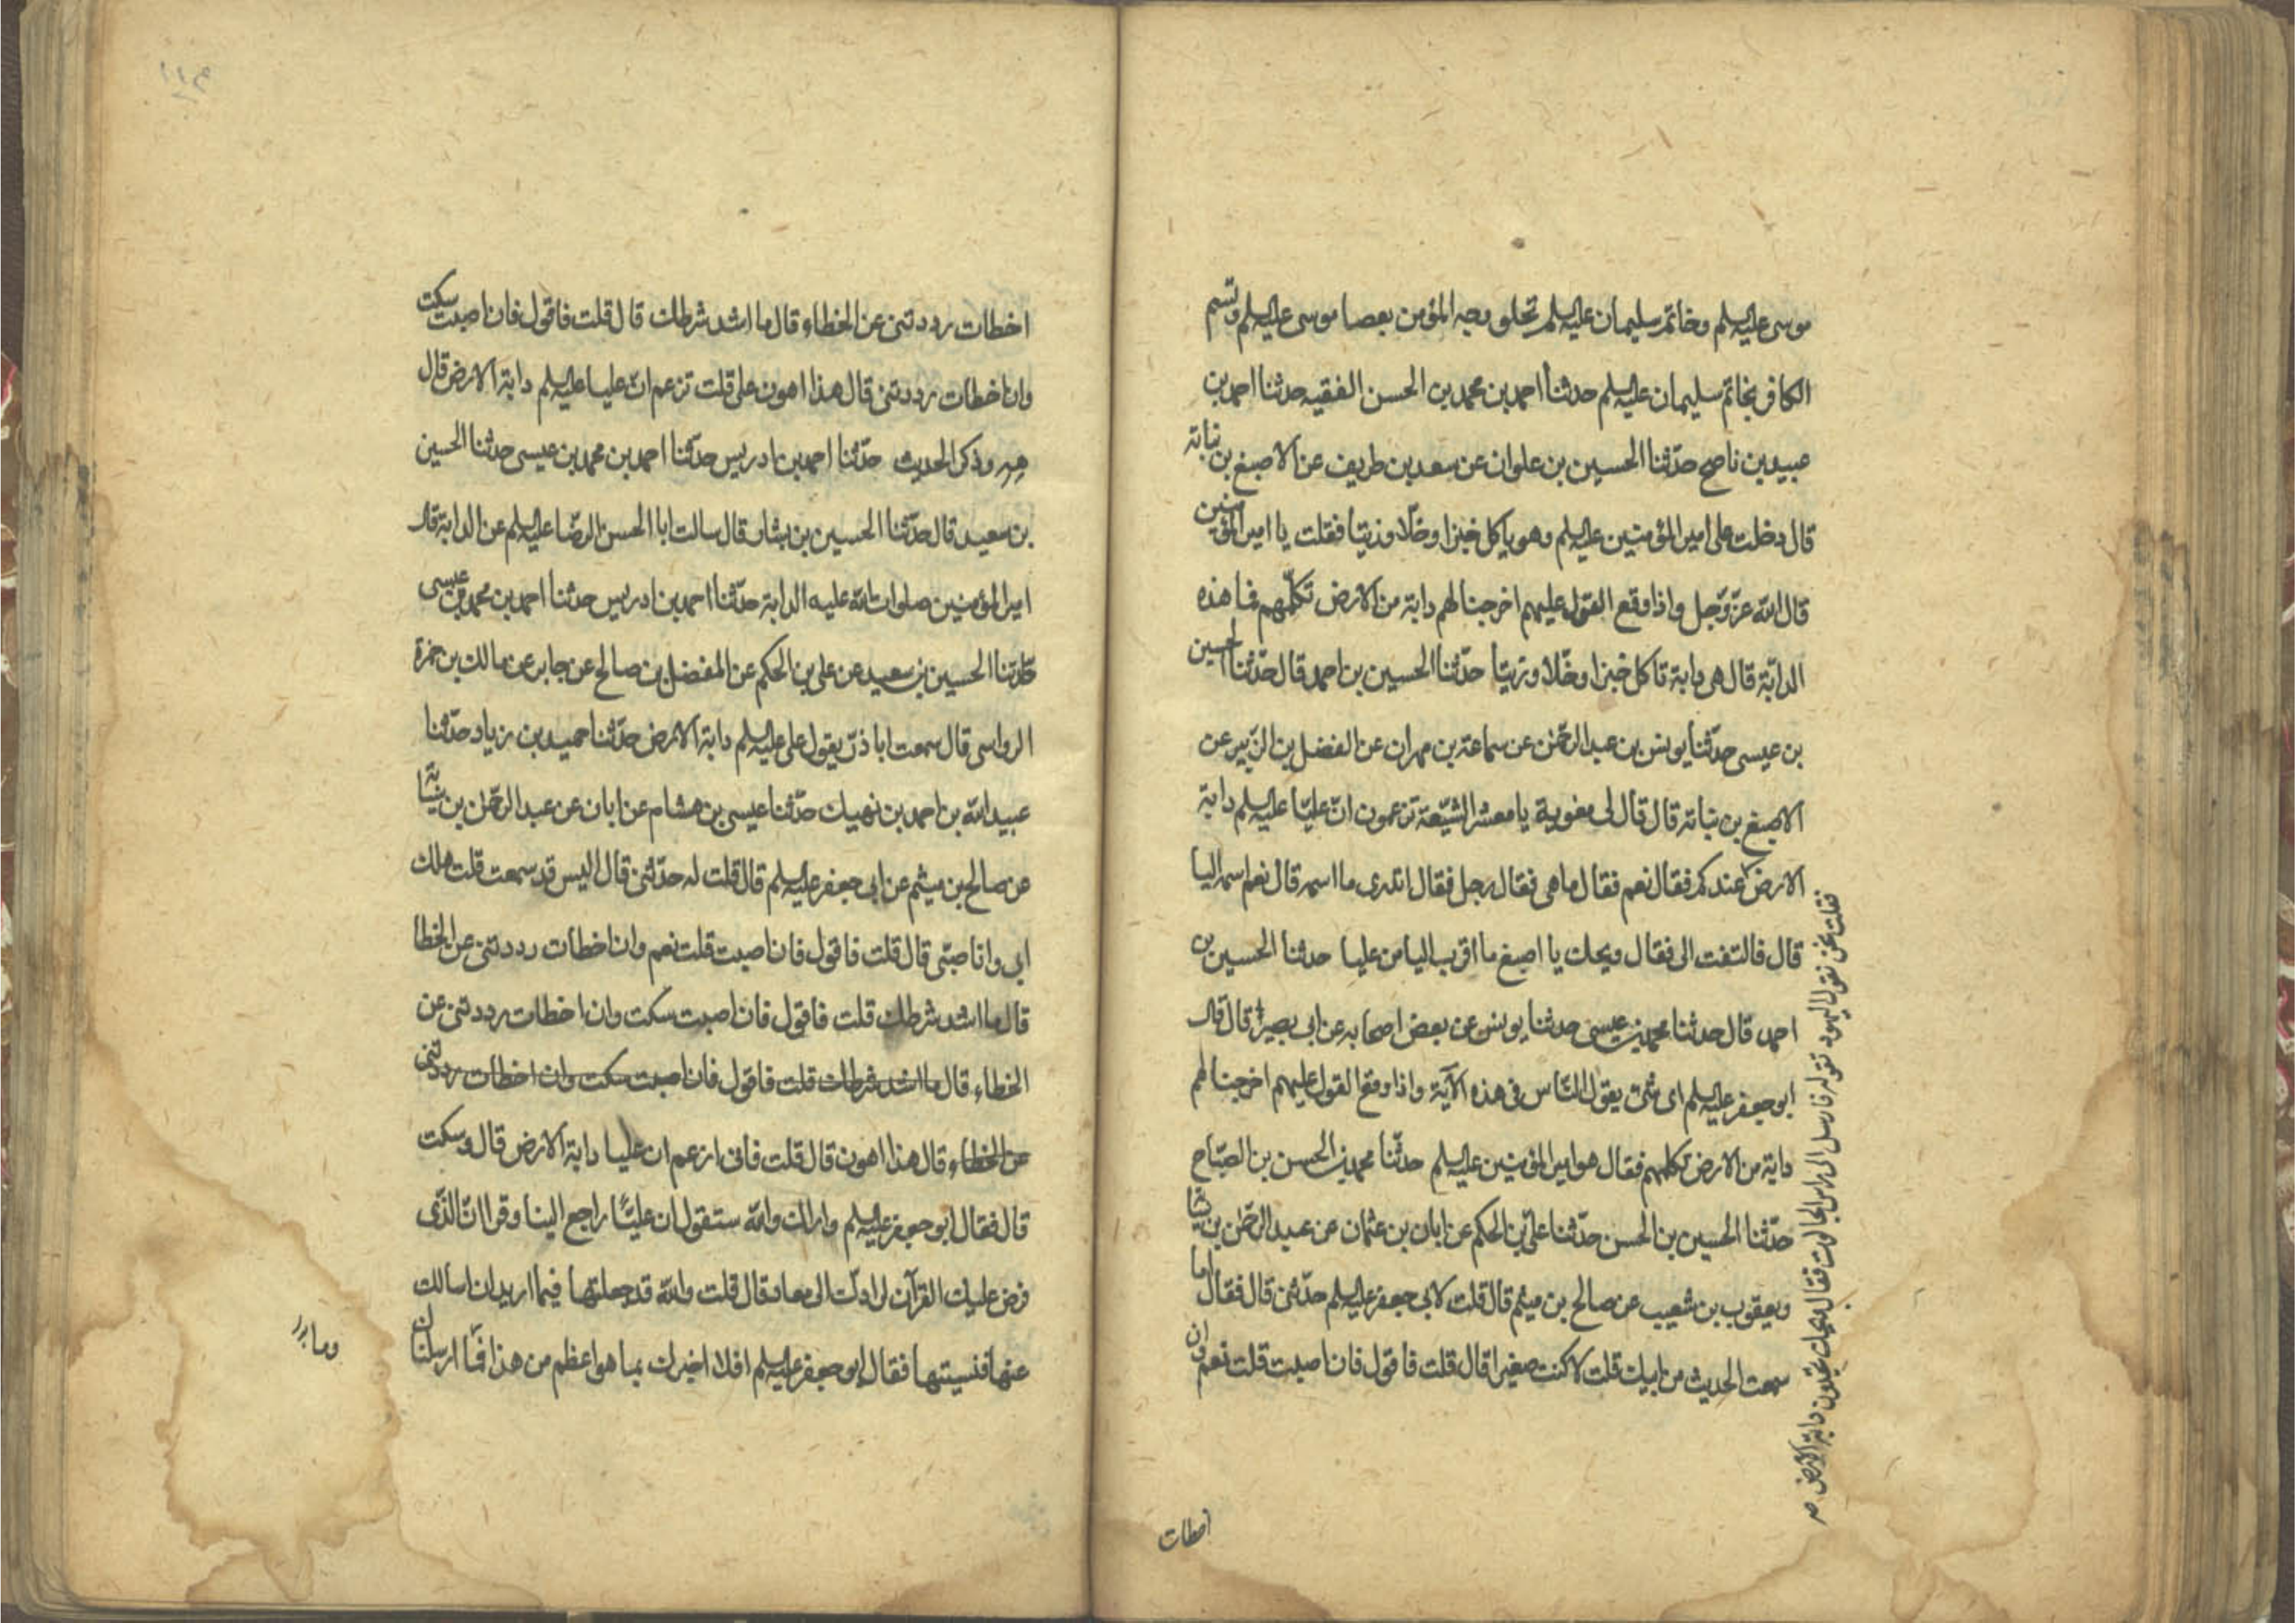 موسى عليه‌السلم وخاتم سليمان عليه‌السلم تجلو وجه المؤمن بعصا موسى عليه‌السلم وتسم
الكافر بخاتم سليمان عليه‌السلم حدثنا احمد بن محمد بن الحسن الفقيه حدثنا احمد بن
عبيد بن ناصح حدّثنا الحسين بن علوان عن سعد بن طريف عن الاصبغ بن نباتة
قال دخلت على امير المؤمنين عليه‌السلم وهو ياكل خبزا وخلّا وزيتا فقلت يا امير المؤمنين
قال الله عزّ وجل واذا وقع القول عليهم اخرجنا لهم دابة من الارض تكلّمهم فما هذه
الدابّة قال هى دابة تاكل خبزا وخلّا وزيتا حدّثنا الحسين بن احمد قال حدّثنا الحسين
بن عيسى حدّثنا يونس بن عبد الرحمٰن عن سماعة بن مهران عن الفضل بن الزّبير عن
الاصبغ بن نباتة قال قال لى معوية يا معشر الشيّعة تزعمون انّ عليّا عليه‌السلم دابة
الارض عندكم فقال نعم فقال ما هى فقال رجل فقال اتدرى ما اسمه قال نعم اسمه اليا
قال فالتفت الى فقال ويحك يا اصبغ ما اقرب اليا من عليا حدثنا الحسين بن
احمد قال حدثنا محمد بن عيسى حدثنا يونس عن بعض اصحابه عن ابى بصير قال قال
ابو جعفر عليه‌السلم اى شئ يقول النّاس فى هذه الآية واذا وقع القول عليهم اخرجنا لهم
دابة من الارض تكلمهم فقال هو امير المؤمنين عليه‌السلم حدّثنا محمد بن الحسن بن الصبّاح
حدّثنا الحسين بن الحسن حدّثنا علىّ بن الحكم عن ابان بن عثمان عن عبد الرحمٰن بن سيا
ويعقوب بن شعيب عن صالح بن ميثم قال قلت لابى جعفر عليه‌السلم حدّثنى قال فقال اما
سمعت الحديث من ابيك قلت لا كنت صغيرا قال قلت فاقول فان اصبت قلت نعم وان
فقلت نحن نقول اليهود تقوله فارسل الى راس الجالوت فقال ويحك تجدون دابة الارض
اخطات
اخطات رددتنى عن الخطاء قال ما اشد شرطك قال قلت فاقول فان اصبت سكت
وان اخطات رددتنى قال هذا اهون على قلت تزعم انّ عليا عليه‌السلم دابة الارض قال
وذكر الحديث حدّثنا احمد بن ادريس حدّثنا احمد بن محمد بن عيسى حدثنا الحسين
بن سعيد قال حدّثنا الحسين بن بشار قال سالت ابا الحسن الرضا عليه‌السلم عن الدابة قال
امير المؤمنين صلوات الله عليه الدابة حدّثنا احمد بن ادريس حدثنا احمد بن محمد بن عيسى
حدّثنا الحسين بن سعيد عن على بن الحكم عن المفضل بن صالح عن جابر عن مالك بن حمزة
الرواسى قال سمعت ابا ذرّ يقول على عليه‌السلم دابة الارض حدّثنا حميد بن زياد حدّثنا
عبيد الله بن احمد بن نهيك حدّثنا عيسى بن هشام عن ابان عن عبد الرحمٰن بن سيابة
عن صالح بن ميثم عن ابى جعفر عليه‌السلم قال قلت له حدّثنى قال اليس قد سمعت قلت هلك
ابى وانا صبّى قال قلت فاقول فان اصبت قلت نعم وان اخطات رددتنى عن الخطا
قال ما اشد شرطك قلت فاقول فان اصبت سكت وان اخطات رددتنى عن
الخطاء قال ما اشد شرطك قلت فاقول فان اصبت سكت وان اخطات رددتنى
عن الخطاء قال هذا اهون قال قلت فانى ازعم ان عليا دابة الارض قال وسكت
قال فقال ابو جعفر عليه‌السلم واراك والله ستقول ان عليّا راجع الينا وقرا انّ الذّى
فرض عليك القرآن لرادّك الى معاد قال قلت والله قد جعلتها فيما اريد ان اسالك
عنها فنسيتها فقال ابو جعفر عليه‌السلم افلا اخبرك بما هو اعظم من هذا فما ارسلناك